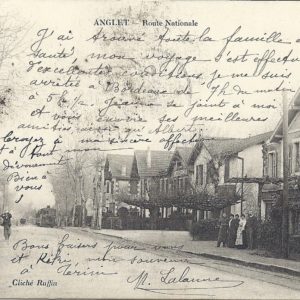 ANGLET — Route Nationale
J'ai trouvé toute la famille en
santé, mon voyage s'est effectué
d'excellentes conditions je me suis
arrêtée à Bordeaux de 7h du matin
à 5h Jeanne se joint à moi
et vous envoie ses meilleures
amitiés ainsi qu'Albert
à ma sincère affection
Bien à
vous
Bons baisers pour vous
et Kiki, mon souvenir
à
M. Lalanne
Cliché Ruffin